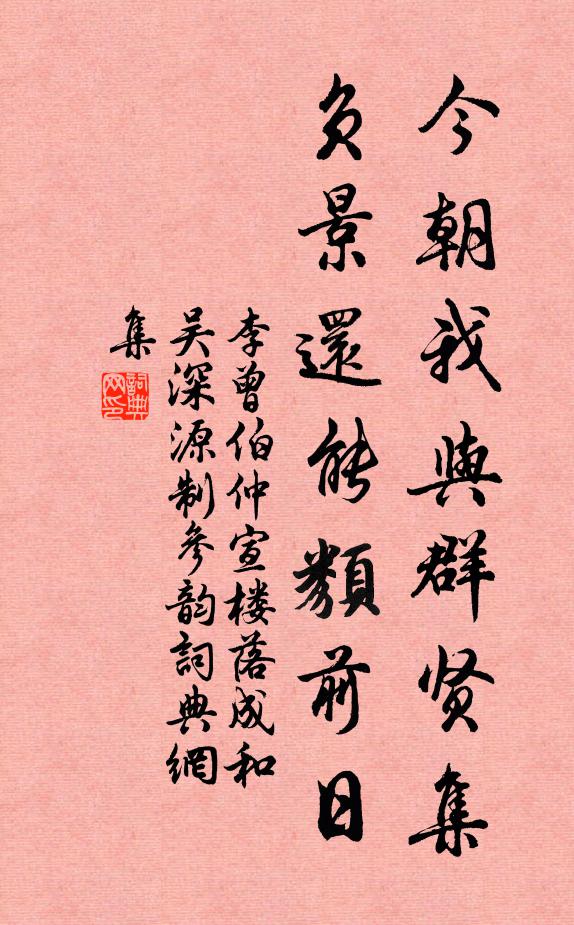 今朝我與群贤集
负景還能類前日
李曾伯仲宣楼落成和
吴深源制參韵詞典網
集
詞典網印